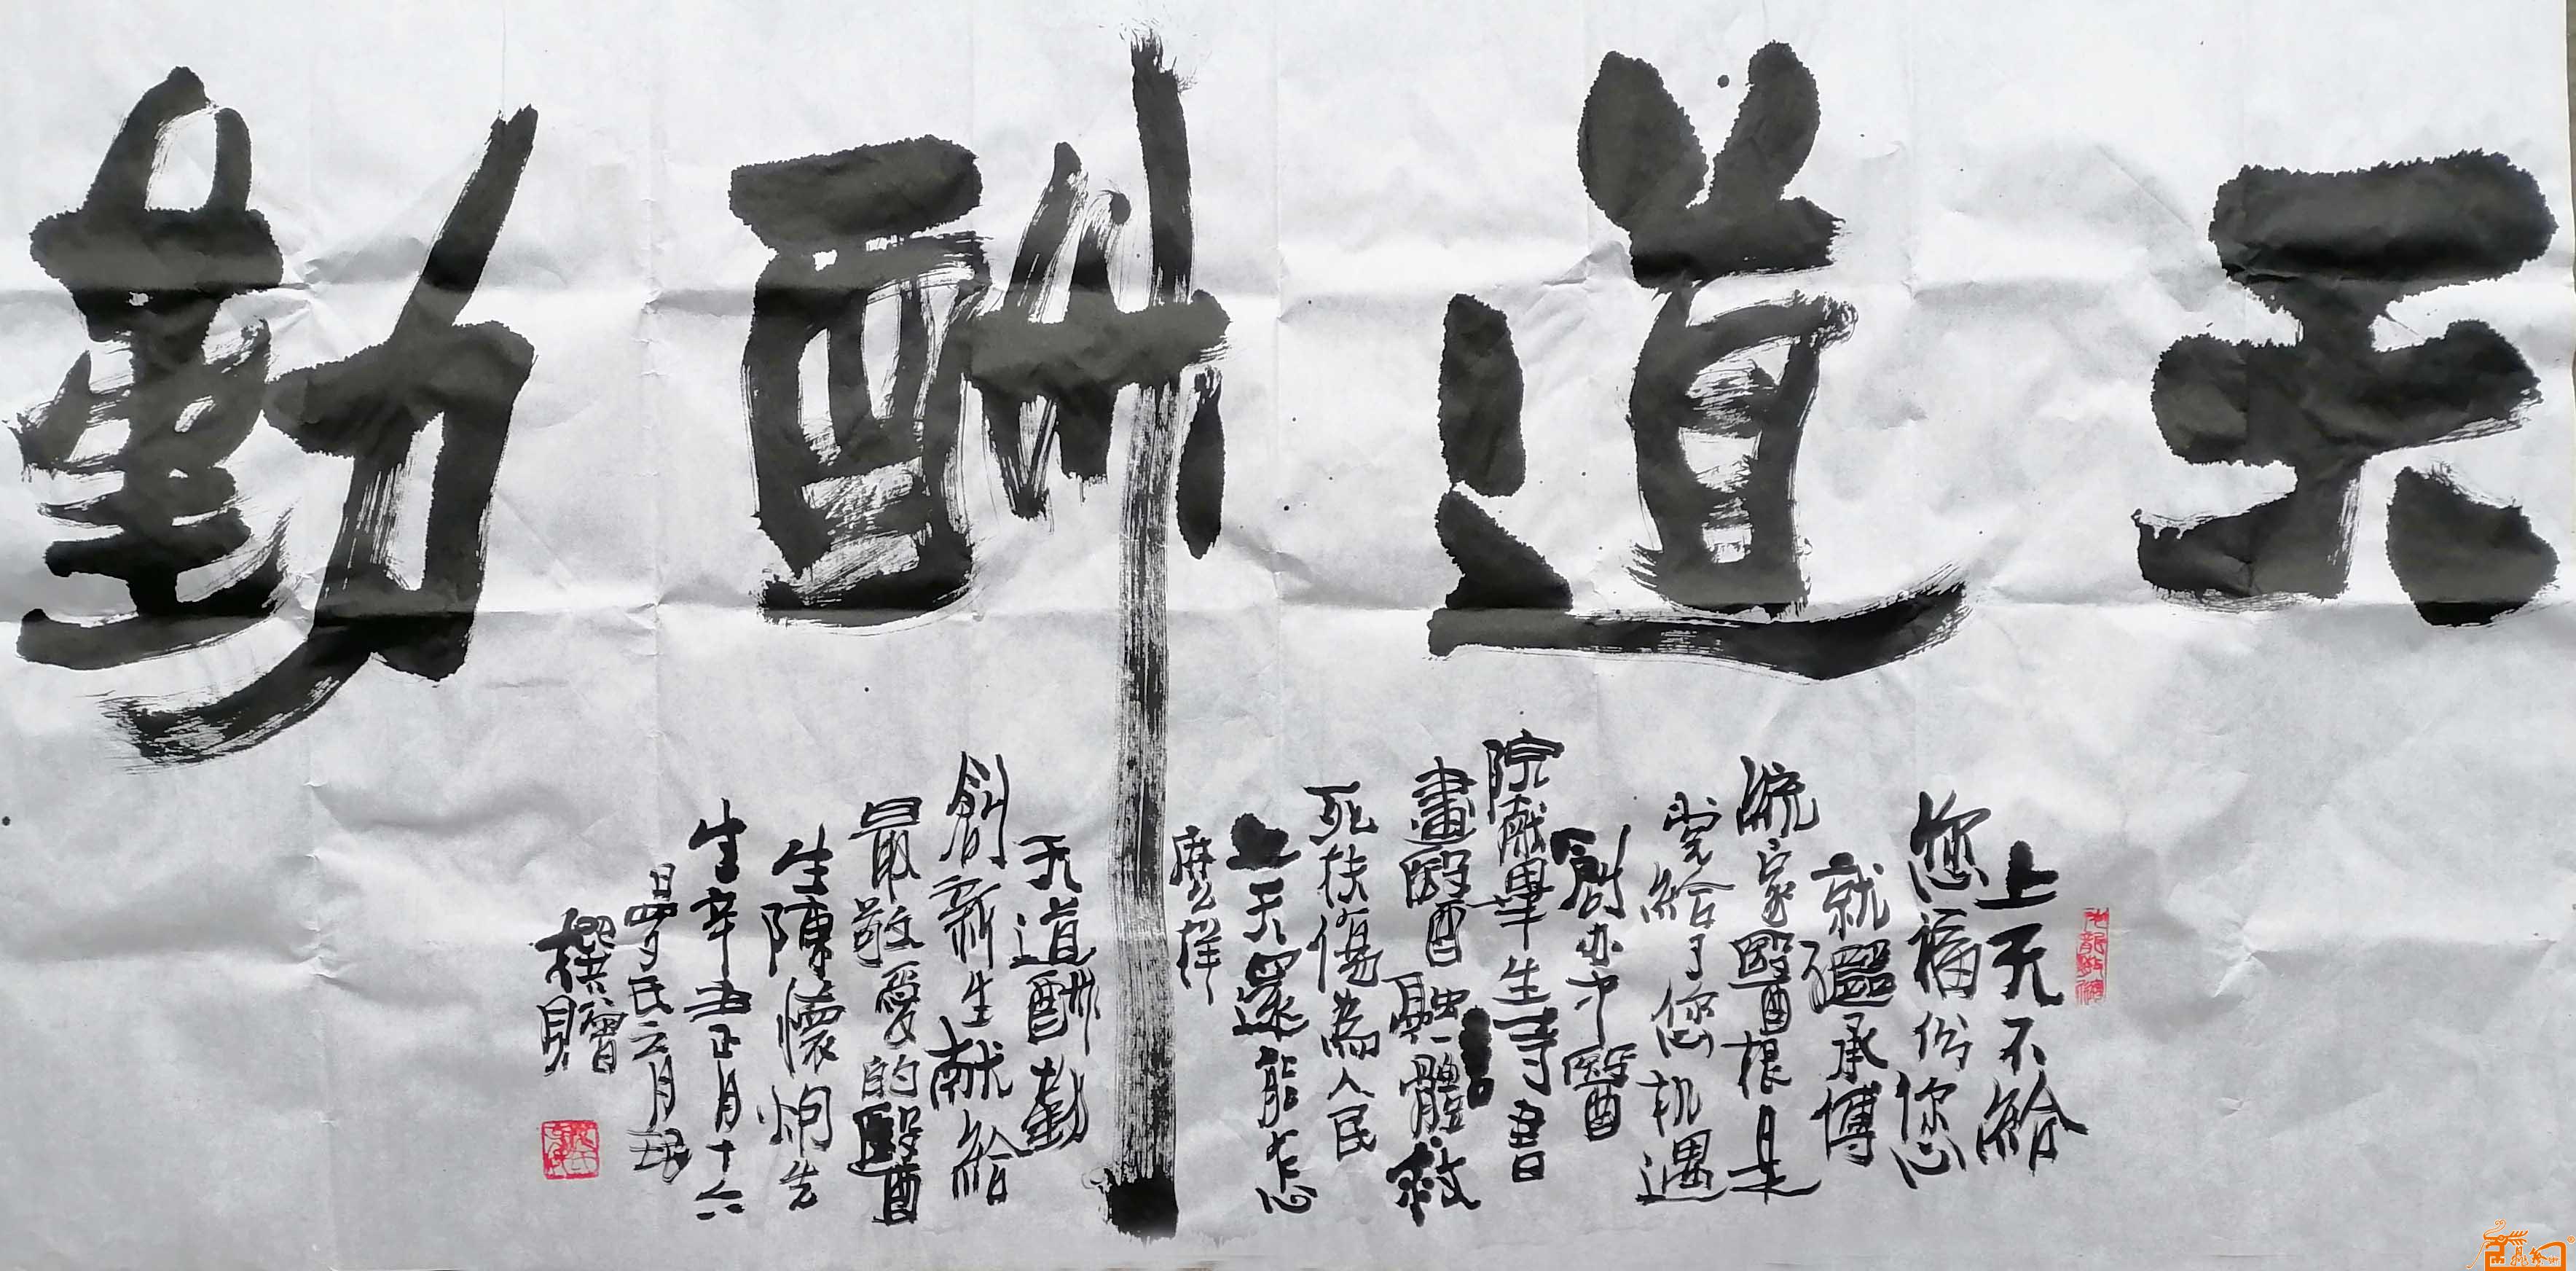 天道酬勤
上天不給
您福份您
就繼承博
流家醫根是
完給了您机遇
創办中醫
院獻畢生等書
畫醫融一體救
死扶傷為人民
上天還能怎
麼樣
天道酬勤
創新生献給
最敬愛的醫
生陳懷炯先
生辛丑正月十六
日罗氏云月
撰贈